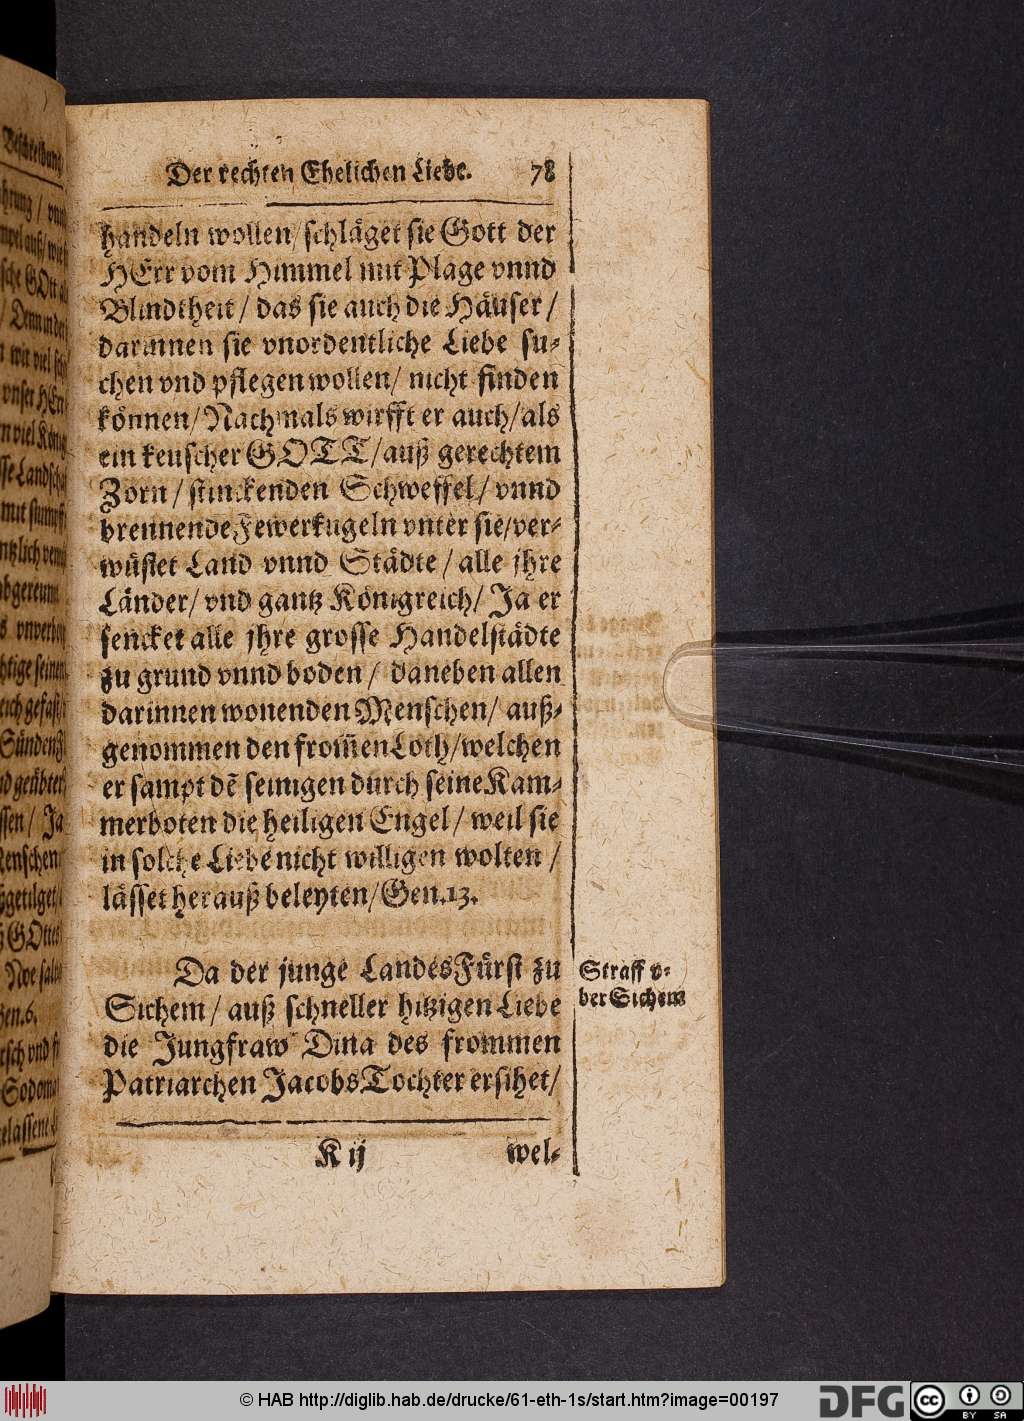 Der rechten Ehelichen Liebe. 78
handeln wollen/ schläget sie Gott der
HErr vom Himmel mit Plage vnnd
Blindtheit / das sie auch die Häuser /
darinnen sie vnordentliche Liebe su-
chen vnd pflegen wollen/ nicht finden
können/ Nachmals wirfft er auch/ als
ein keuscher GOTT/ auß gerechtem
Zorn / stinckenden Schweffel/ vnnd
brennende Fewerkugeln vnter sie/ ver-
wüstet Land vnnd Städte / alle jhre
Länder/ vnd gantz Königreich/ Ja er
sencket alle jhre grosse Handelstädte
zu grund vnnd boden / daneben allen
darinnen wonenden Menschen/ auß-
genommen den from̃en Loth/ welchen
er sampt dẽ seinigen durch seine Kam-
merboten die heiligen Engel / weil sie
in solche Liebe nicht willigen wolten /
lässet herauß beleyten/ Gen. 13.
Da der junge LandesFürst zu
Sichem / auß schneller hitzigen Liebe
die Jungfraw Dina des frommen
Patriarchen Jacobs Tochter ersihet/
Straff v-
ber Sichem
K ij wel-
Beschreibung
© HAB http://diglib.hab.de/drucke/61-eth-1s/start.htm?image=00197
DFG
cc BY SA